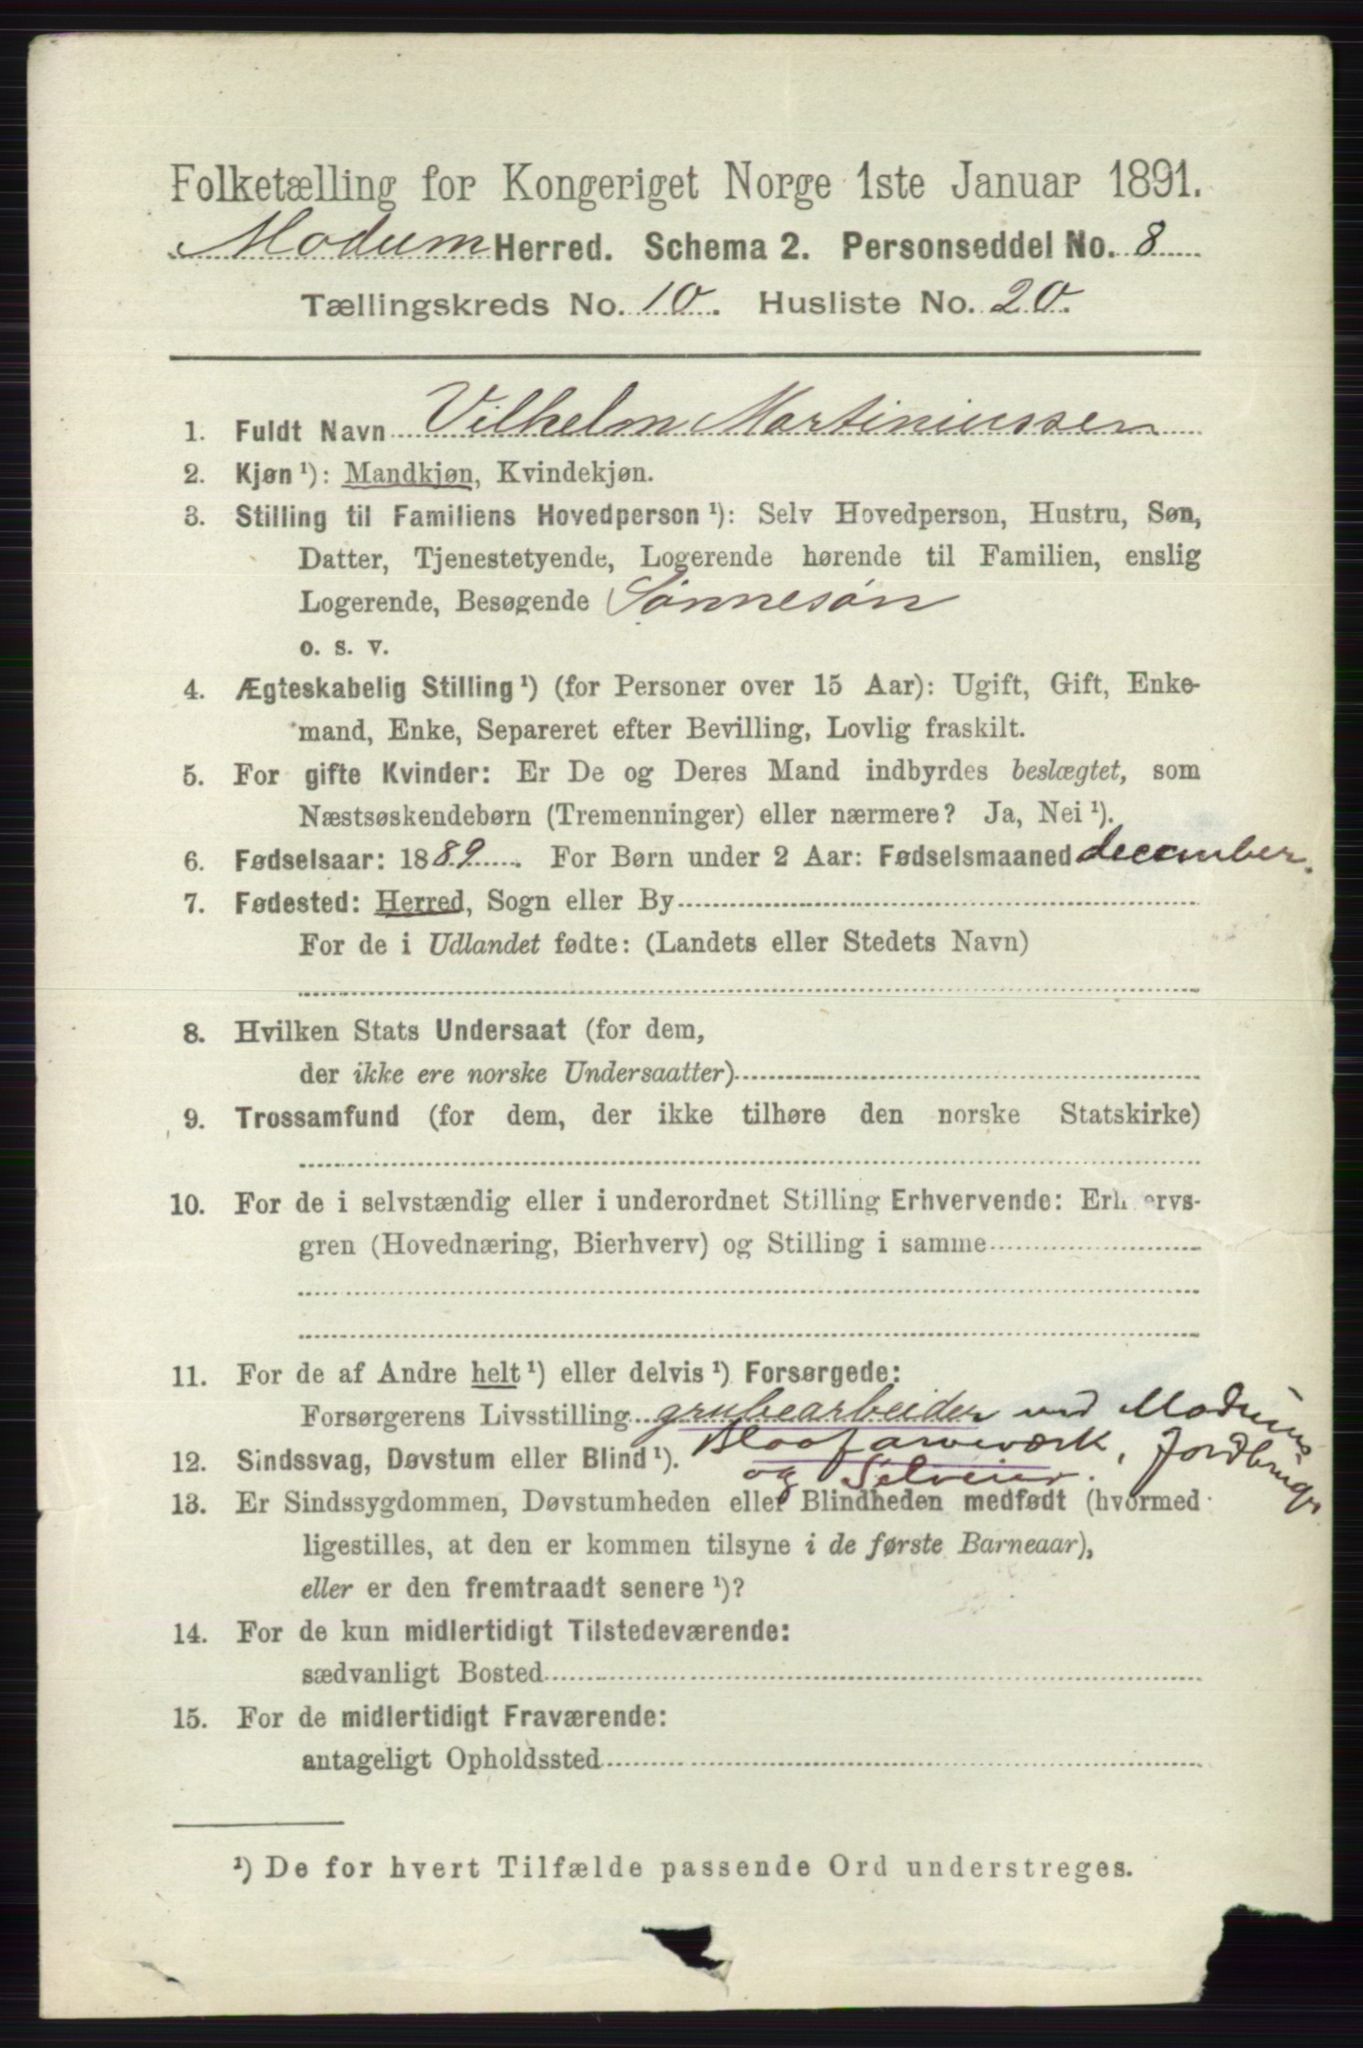 Folketælling for Kongeriget Norge 1ste Januar 1891.
Modum Herred. Schema 2. Personseddel No. 8
Tællingskreds No. 10. Husliste No. 20.
1. Fuldt Navn Vilhelm Martiniussen
2. Kjøn ¹): Mandkjøn, Kvindekjøn.
3. Stilling til Familiens Hovedperson ¹): Selv Hovedperson, Hustru, Søn,
Datter, Tjenestetyende, Logerende hørende til Familien, enslig
Logerende, Besøgende Sønnesøn
o. s. v.
4. Ægteskabelig Stilling ¹) (for Personer over 15 Aar): Ugift, Gift, Enke-
mand, Enke, Separeret efter Bevilling, Lovlig fraskilt.
5. For gifte Kvinder: Er De og Deres Mand indbyrdes beslægtet, som
Næstsøskendebørn (Tremenninger) eller nærmere? Ja, Nei ¹).
6. Fødselsaar: 1889. For Børn under 2 Aar: Fødselsmaaned december.
7. Fødested: Herred, Sogn eller By
For de i Udlandet fødte: (Landets eller Stedets Navn)
8. Hvilken Stats Undersaat (for dem,
der ikke ere norske Undersaatter)
9. Trossamfund (for dem, der ikke tilhøre den norske Statskirke)
10. For de i selvstændig eller i underordnet Stilling Erhvervende: Erhvervs-
gren (Hovednæring, Bierhverv) og Stilling i samme
11. For de af Andre helt ¹) eller delvis ¹) Forsørgede:
Forsørgerens Livsstilling grubearbeider ved Modums
Blaafarveværk, Jordbruger
12. Sindssvag, Døvstum eller Blind ¹).
og Selveier.
13. Er Sindssygdommen, Døvstumheden eller Blindheden medfødt (hvormed
ligestilles, at den er kommen tilsyne i de første Barneaar),
eller er den fremtraadt senere ¹)?
14. For de kun midlertidigt Tilstedeværende:
sædvanligt Bosted
15. For de midlertidigt Fraværende:
antageligt Opholdssted
¹) De for hvert Tilfælde passende Ord understreges.